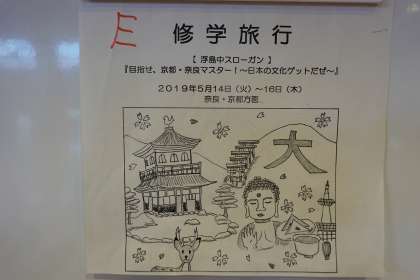 E
修学旅行
【 浮島中スローガン 】
『目指せ、京都・奈良マスター!~日本の文化ゲットだぜ~』
2019年5月14日(火)~16日(木)
奈良・京都方面
大